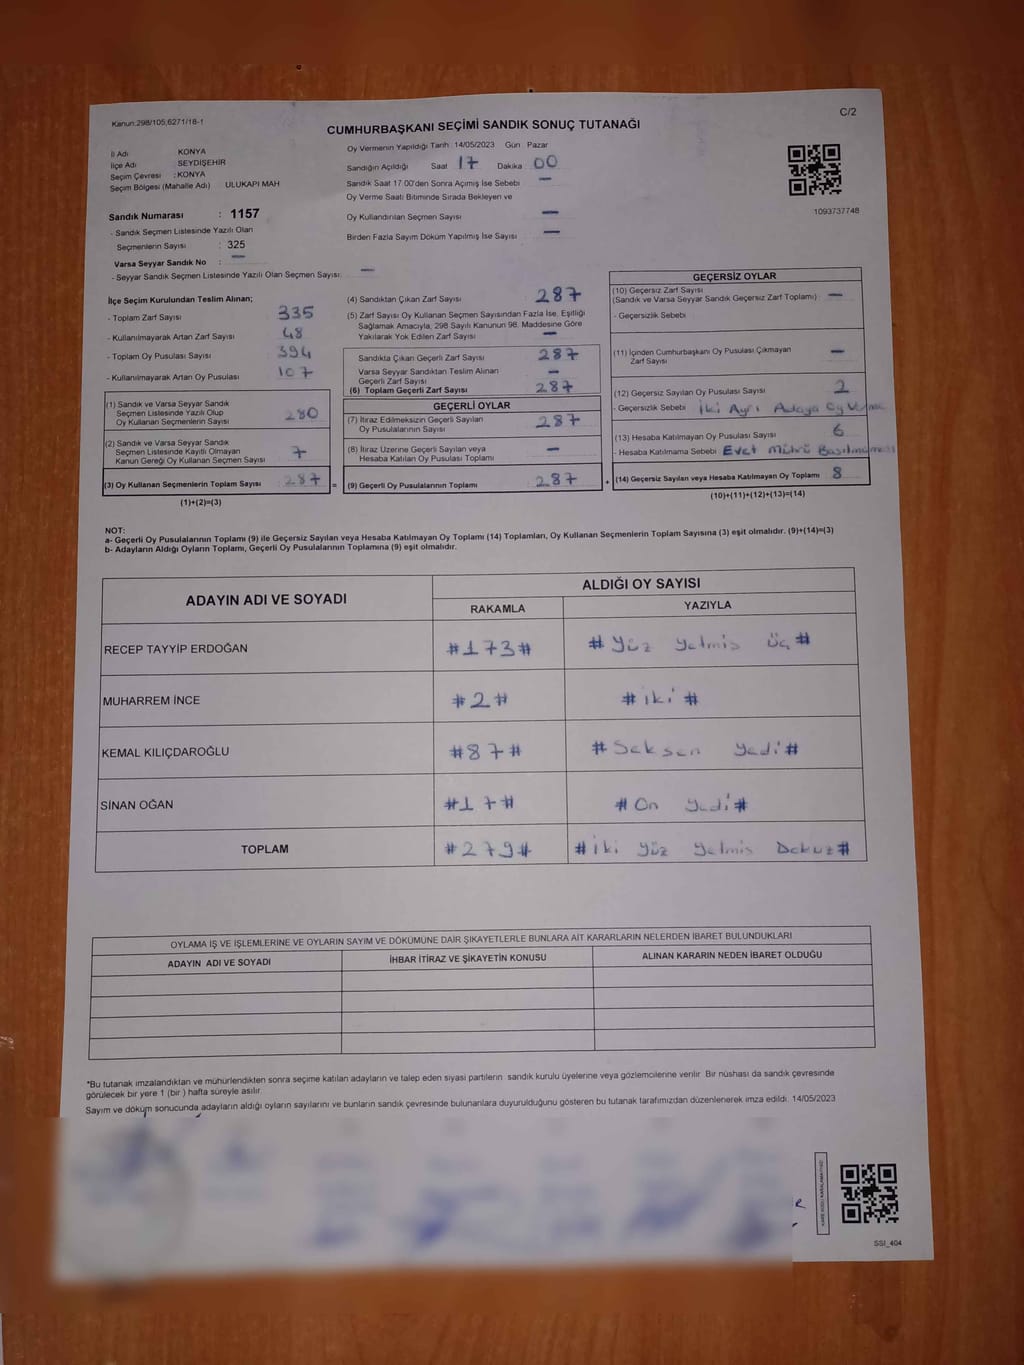 Kanun:298/105,6271/18-1
C/2
CUMHURBAŞKANI SEÇİMİ SANDIK SONUÇ TUTANAĞI
İl Adı KONYA
İlçe Adı SEYDİŞEHİR
Seçim Çevresi : KONYA
Seçim Bölgesi (Mahalle Adı) ULUKAPI MAH
Sandık Numarası : 1157
- Sandık Seçmen Listesinde Yazılı Olan
Seçmenlerin Sayısı : 325
Varsa Seyyar Sandık No : —
- Seyyar Sandık Seçmen Listesinde Yazılı Olan Seçmen Sayısı: —
Oy Vermenin Yapıldığı Tarih : 14/05/2023 Gün Pazar
Sandığın Açıldığı Saat 17 Dakika 00
Sandık Saat 17.00'den Sonra Açımış İse Sebebi —
Oy Verme Saati Bitiminde Sırada Bekleyen ve
Oy Kullandırılan Seçmen Sayısı —
Birden Fazla Sayım Döküm Yapılmış İse Sayısı —
1093737748
İlçe Seçim Kurulundan Teslim Alınan;
- Toplam Zarf Sayısı 335
- Kullanılmayarak Artan Zarf Sayısı 48
- Toplam Oy Pusulası Sayısı 394
- Kullanılmayarak Artan Oy Pusulası 107
(1) Sandık ve Varsa Seyyar Sandık
Seçmen Listesinde Yazılı Olup
Oy Kullanan Seçmenlerin Sayısı 280
(2) Sandık ve Varsa Seyyar Sandık
Seçmen Listesinde Kayıtlı Olmayan
Kanun Gereği Oy Kullanan Seçmen Sayısı 7
(3) Oy Kullanan Seçmenlerin Toplam Sayısı 287 =
(1)+(2)=(3)
(4) Sandıktan Çıkan Zarf Sayısı 287
(5) Zarf Sayısı Oy Kullanan Seçmen Sayısından Fazla İse, Eşitliği
Sağlamak Amacıyla, 298 Sayılı Kanunun 98. Maddesine Göre
Yakılarak Yok Edilen Zarf Sayısı —
Sandıkta Çıkan Geçerli Zarf Sayısı 287
Varsa Seyyar Sandıktan Teslim Alınan
Geçerli Zarf Sayısı —
(6) Toplam Geçerli Zarf Sayısı 287
GEÇERLİ OYLAR
(7) İtiraz Edilmeksizin Geçerli Sayılan
Oy Pusulalarının Sayısı 287
(8) İtiraz Üzerine Geçerli Sayılan veya
Hesaba Katılan Oy Pusulası Toplamı —
(9) Geçerli Oy Pusulalarının Toplamı 287 +
GEÇERSİZ OYLAR
(10) Geçersiz Zarf Sayısı
(Sandık ve Varsa Seyyar Sandık Geçersiz Zarf Toplamı) : —
- Geçersizlik Sebebi
(11) İçinden Cumhurbaşkanı Oy Pusulası Çıkmayan
Zarf Sayısı —
(12) Geçersiz Sayılan Oy Pusulası Sayısı 2
- Geçersizlik Sebebi İki Ayrı Adaya Oy Verme
(13) Hesaba Katılmayan Oy Pusulası Sayısı 6
- Hesaba Katılmama Sebebi Evet Mührü Basılmaması
(14) Geçersiz Sayılan veya Hesaba Katılmayan Oy Toplamı 8
(10)+(11)+(12)+(13)=(14)
NOT:
a- Geçerli Oy Pusulalarının Toplamı (9) ile Geçersiz Sayılan veya Hesaba Katılmayan Oy Toplamı (14) Toplamları, Oy Kullanan Seçmenlerin Toplam Sayısına (3) eşit olmalıdır. (9)+(14)=(3)
b- Adayların Aldığı Oyların Toplamı, Geçerli Oy Pusulalarının Toplamına (9) eşit olmalıdır.
ADAYIN ADI VE SOYADI
ALDIĞI OY SAYISI
RAKAMLA YAZIYLA
RECEP TAYYİP ERDOĞAN #173# # Yüz yetmis üç #
MUHARREM İNCE #2# # iki #
KEMAL KILIÇDAROĞLU #87# # Seksen yedi #
SİNAN OĞAN #17# # On yedi #
TOPLAM #279# # iki yüz yetmis Dokuz #
OYLAMA İŞ VE İŞLEMLERİNE VE OYLARIN SAYIM VE DÖKÜMÜNE DAİR ŞİKAYETLERLE BUNLARA AİT KARARLARIN NELERDEN İBARET BULUNDUKLARI
ADAYIN ADI VE SOYADI İHBAR İTİRAZ VE ŞİKAYETİN KONUSU ALINAN KARARIN NEDEN İBARET OLDUĞU
*Bu tutanak imzalandıktan ve mühürlendikten sonra seçime katılan adayların ve talep eden siyasi partilerin sandık kurulu üyelerine veya gözlemcilerine verilir. Bir nüshası da sandık çevresinde
görülecek bir yere 1 (bir ) hafta süreyle asılır.
Sayım ve döküm sonucunda adayların aldığı oyların sayılarını ve bunların sandık çevresinde bulunanlara duyurulduğunu gösteren bu tutanak tarafımızdan düzenlenerek imza edildi. 14/05/2023
KARE KODU KARALAMAYINIZ!
SSI_404